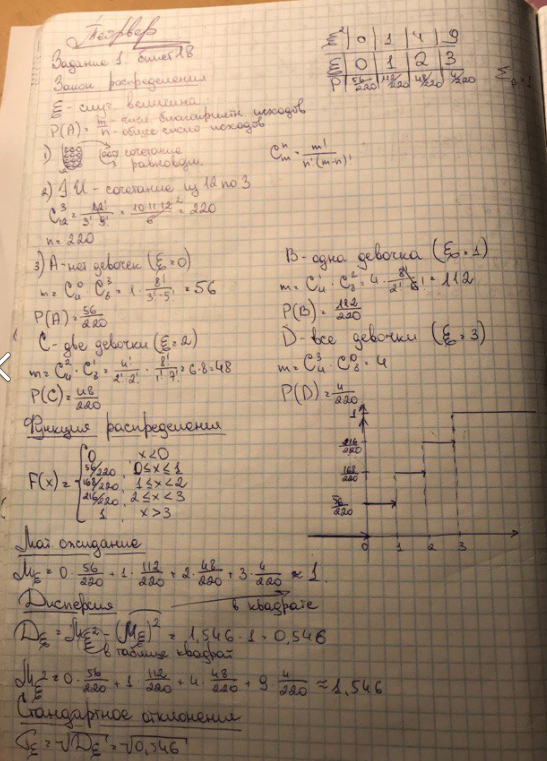 Теорвер
Задание 1 билет 18
Закон распределения
ξ - случ. величина
P(A) = m/n - число благоприятн исходов / общее число исходов
ξ² | 0 | 1 | 4 | 9
ξ | 0 | 1 | 2 | 3
P | 56/220 | 112/220 | 48/220 | 4/220
1) сочетание
равновозм.
C_m^n = m!/n!(m-n)!
2) U - сочетание из 12 по 3
C_12^3 = 12!/3!·9! = 10·11·12/6 = 220
n = 220
3) A - нет девочек (ξ=0)
m = C_4^0 · C_8^3 = 1 · 8!/3!·5! = 56
P(A) = 56/220
B - одна девочка (ξ=1)
m = C_4^1 · C_8^2 = 4 · 8!/2!·6! = 112
P(B) = 112/220
C - две девочки (ξ=2)
m = C_4^2 · C_8^1 = 4!/2!·2! · 8!/1!·7! = 6·8 = 48
P(C) = 48/220
D - все девочки (ξ=3)
m = C_4^3 · C_8^0 = 4
P(D) = 4/220
Функция распределения
F(x) = {
0, x<0
56/220, 0≤x≤1
168/220, 1≤x<2
216/220, 2≤x<3
1, x>3
1
216/220
168/220
56/220
0 1 2 3
Мат. ожидание
Mξ = 0 · 56/220 + 1 · 112/220 + 2 · 48/220 + 3 · 4/220 ≈ 1
Дисперсия
в квадрате
Dξ = Mξ² - (Mξ)² = 1,546 - 1 = 0,546
в таблице квадрат
Mξ² = 0 · 56/220 + 1 · 112/220 + 4 · 48/220 + 9 · 4/220 ≈ 1,546
Стандартное отклонения
σξ = √Dξ = √0,546